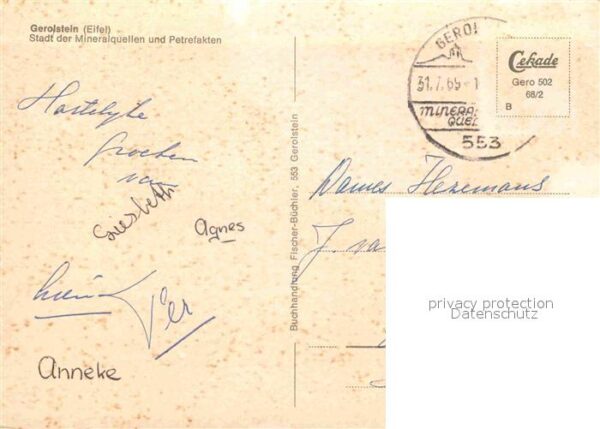 Gerolstein (Eifel)
Stadt der Mineralquellen und Petrefakten
Hartelyke
Groeten
van
Liesbeth
Agnes
Anneke
Buchhandlung Fischer-Büchler, 553 Gerolstein
GEROL
31.7.69-1
MINERAL
QUEL
553
Cekade
Gero 502
68/2
B
Dames Hezemans
J. va
privacy protection
Datenschutz